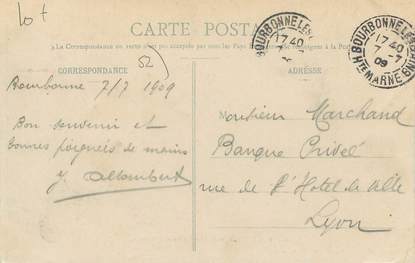 10 +
CARTE POSTALE
La Correspondance au verso n'est pas acceptée par tous les Pays
CORRESPONDANCE
ADRESSE
52
BOURBONNE-LES-
17 40
7 - 7
BOURBONNE-LES-
17 40
7 - 7
09
HTE MARNE
Bourbonne 7/7 1909
Bon souvenir et
bonnes poignées de mains
Monsieur Marchand
Banque Privée
rue de l'Hotel de Ville
Lyon